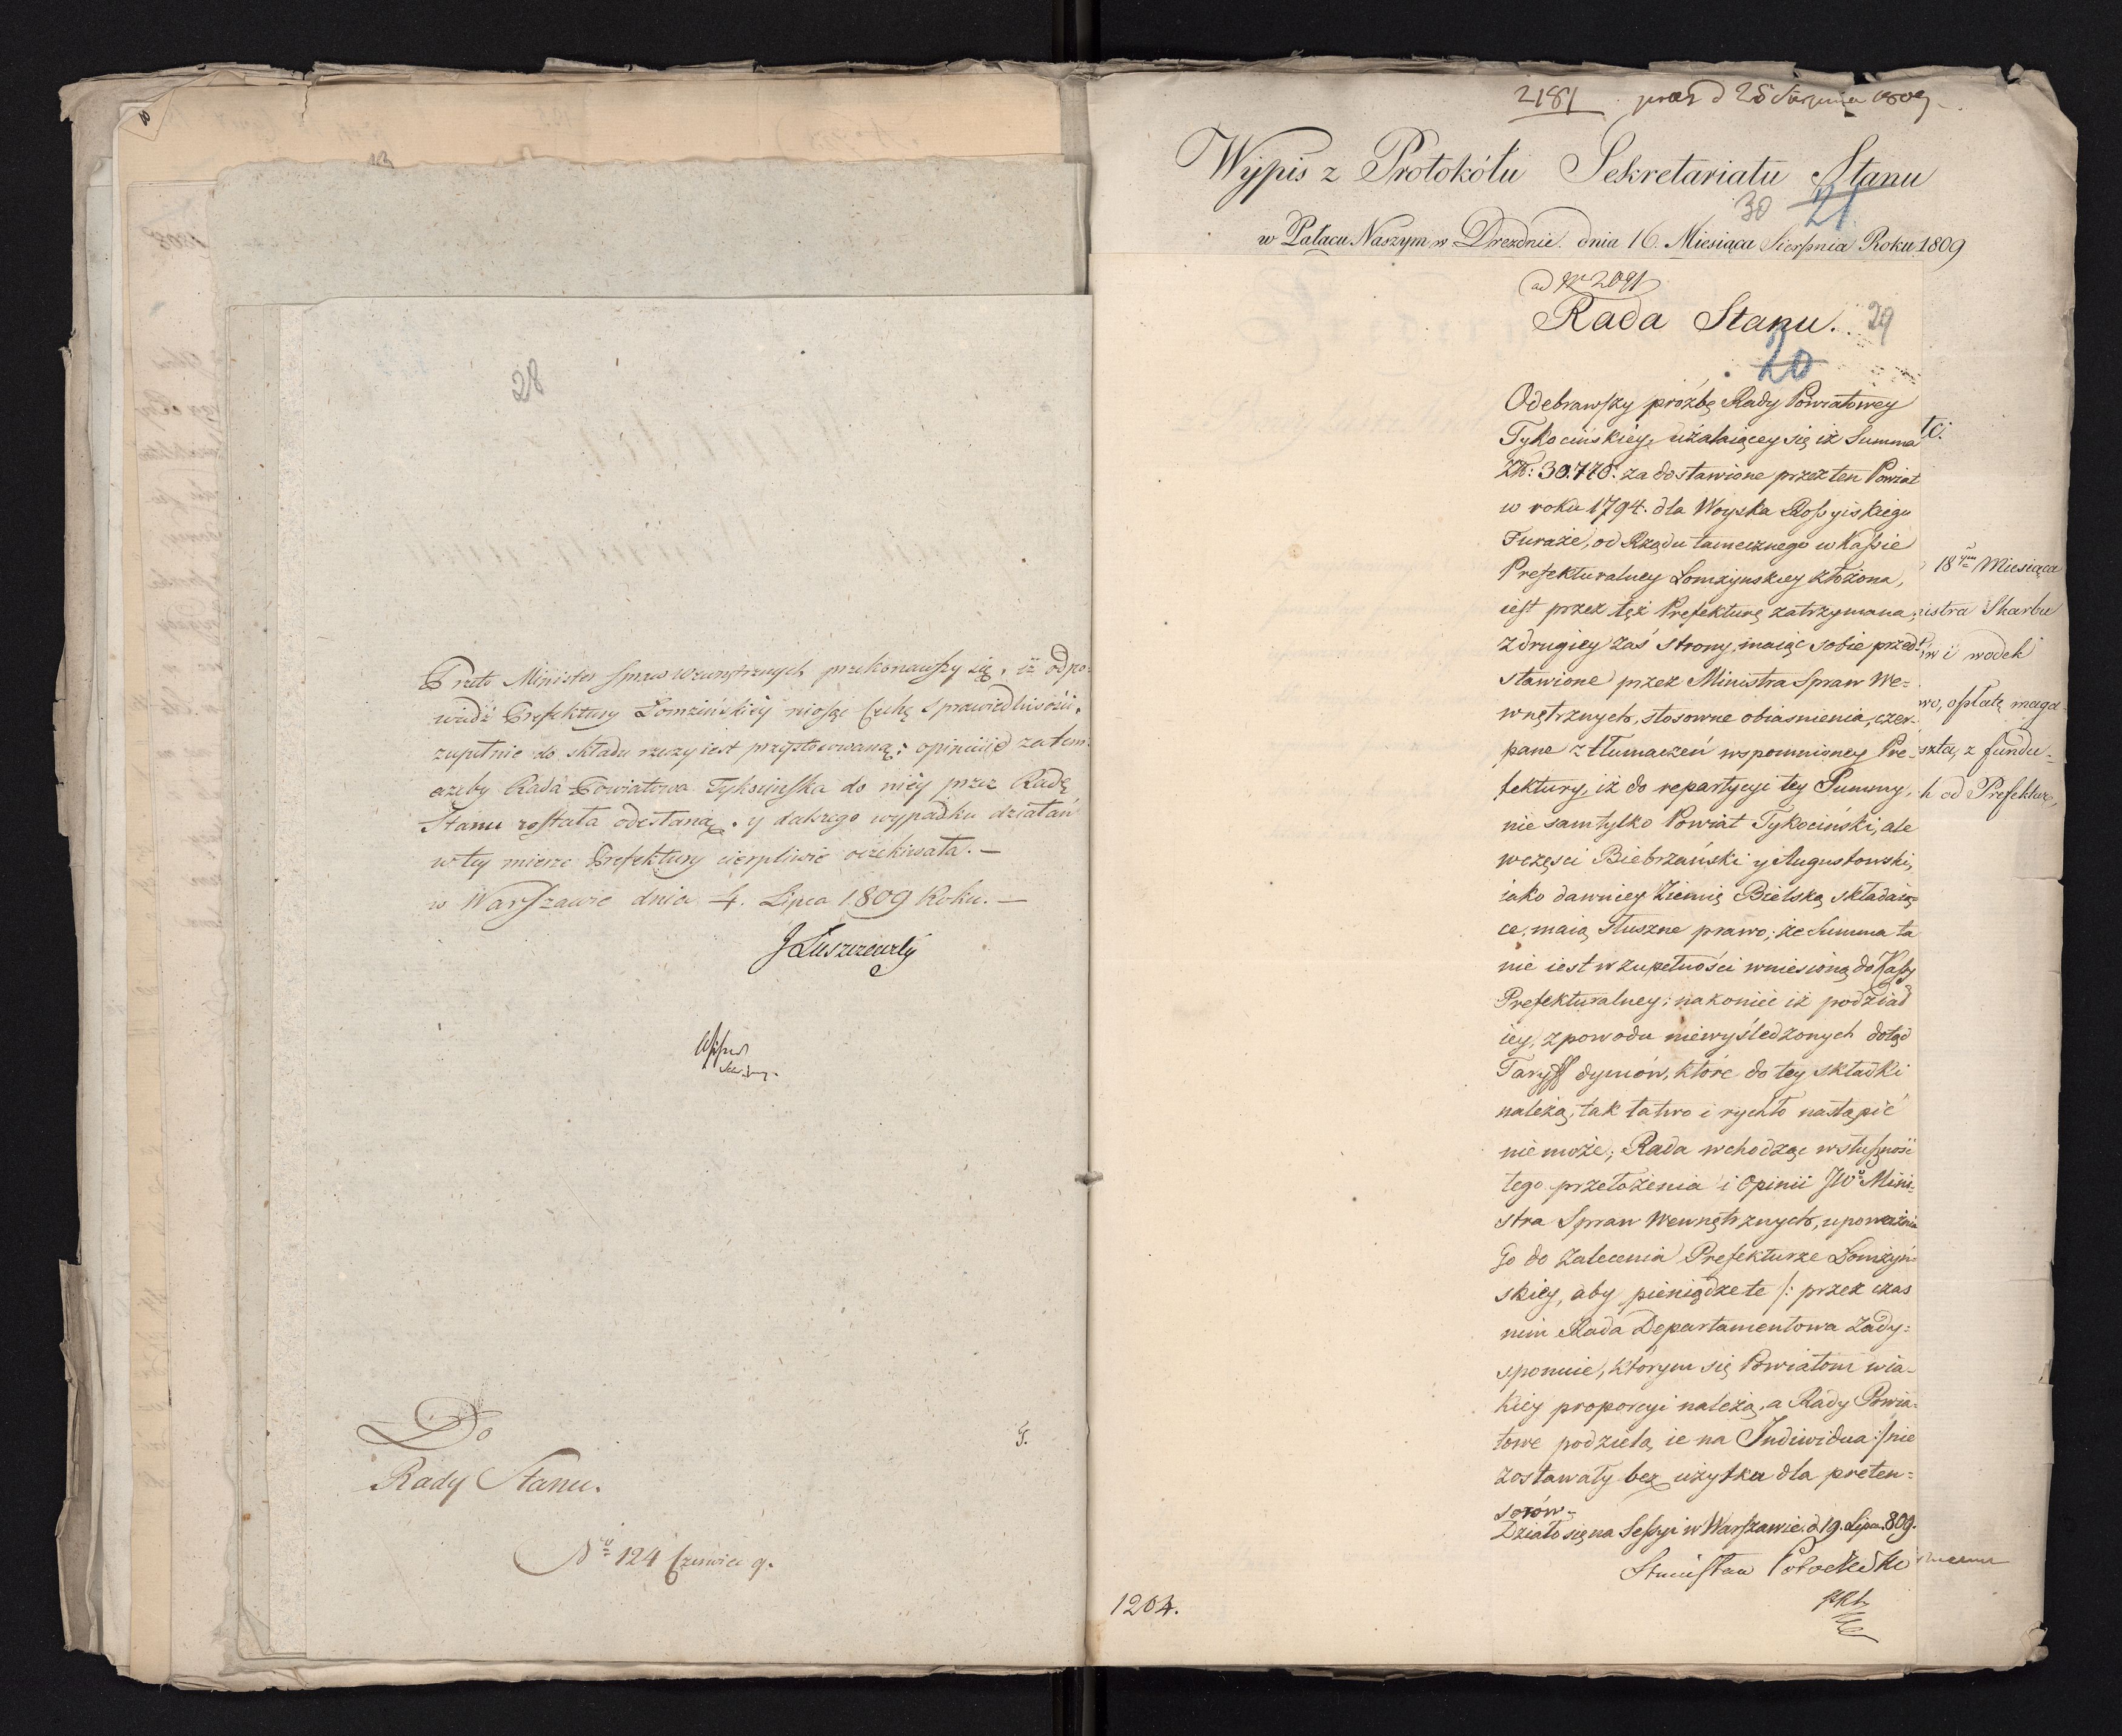 28
Przeto Minister Spraw Wewnętrznych przekonawszy się, iż odpo-
wiedź Prefektury Łomzińskiéy niosąc Cechę Sprawiedliwości,
zupełnie do składu rzeczy iest przystosowaną; opiniuie zatem
ażeby Rada Powiatowa Tykocińska do niéy przez Radę
Stanu została odesłaną, y dalszego wypadku działań
w tey mierze Prefektury cierpliwie oczekiwała. —
w Warszawie dnia 4. Lipca 1809 Roku. —
J Łuszczewski
Do
Rady Stanu.
G.
No 124 Czerwiec 9.
2181 praes d 25 Sierpnia 1809
Wypis z Protokółu Sekretariatu Stanu
30 21
w Pałacu Naszym w Dreznie. dnia 16. Miesiąca Sierpnia Roku 1809
ad No 2091
Rada Stanu. 29
20
Odebrawszy prożbę Rady Powiatowey
Tykocińskiéy, użalaiącey się iż Summa
Zł: 30.770. za dostawione przez ten Powiat
w roku 1794. dla Woyska Rossyiskiego
Furaże, od Rządu tamecznego w Kassie
Prefekturalney Łomżynskiey złożona,
iest przez tęż Prefekturę zatrzymana;
z drugiey zaś strony, maiąc sobie przed-
stawione przez Ministra Spraw We-
wnętrznych, stosowne obiasnienia, czer-
pane z tłumaczeń wspomnioney Pre-
fektury, iż do repartycyi tey Summy,
nie sam tylko Powiat Tykociński, ale
w częsci Biebrzański y Augustowski,
iako dawniey Ziemię Bielską składaią-
ce, maią słuszne prawo; że Summa ta
nie iest w zupełności wniesioną do Kassy
Prefekturalney; nakoniec iż podział
iey, z powodu niewyśledzonych dotąd
Taryff dymów, które do tey składki
należą, tak łatwo i rychło nastąpić
nie może; Rada wchodząc w słuszność
tego przełożenia i Opinii JWo Mini-
stra Spraw Wewnętrznych, upoważnia
Go do zalecenia Prefekturze Łomżyń-
skiey, aby pieniądze te /: przez czas
nim Rada Departamentowa zady-
sponuie, którym się Powiatom w ia-
kiey proporcyi należą, a Rady Powia-
towe podzielą ie na Indiwidua :/ nie
zostawały bez użytku dla preten-
sorów. –
Działo się na Sessyi w Warszawie. d 19. Lipca 809.
Stanisław Potocki
1204.
tc.
18ym Miesiąca
istra Skarbu
ów i wodek
wo, opłatę maga-
szta, z fundu-
h od Prefektur,